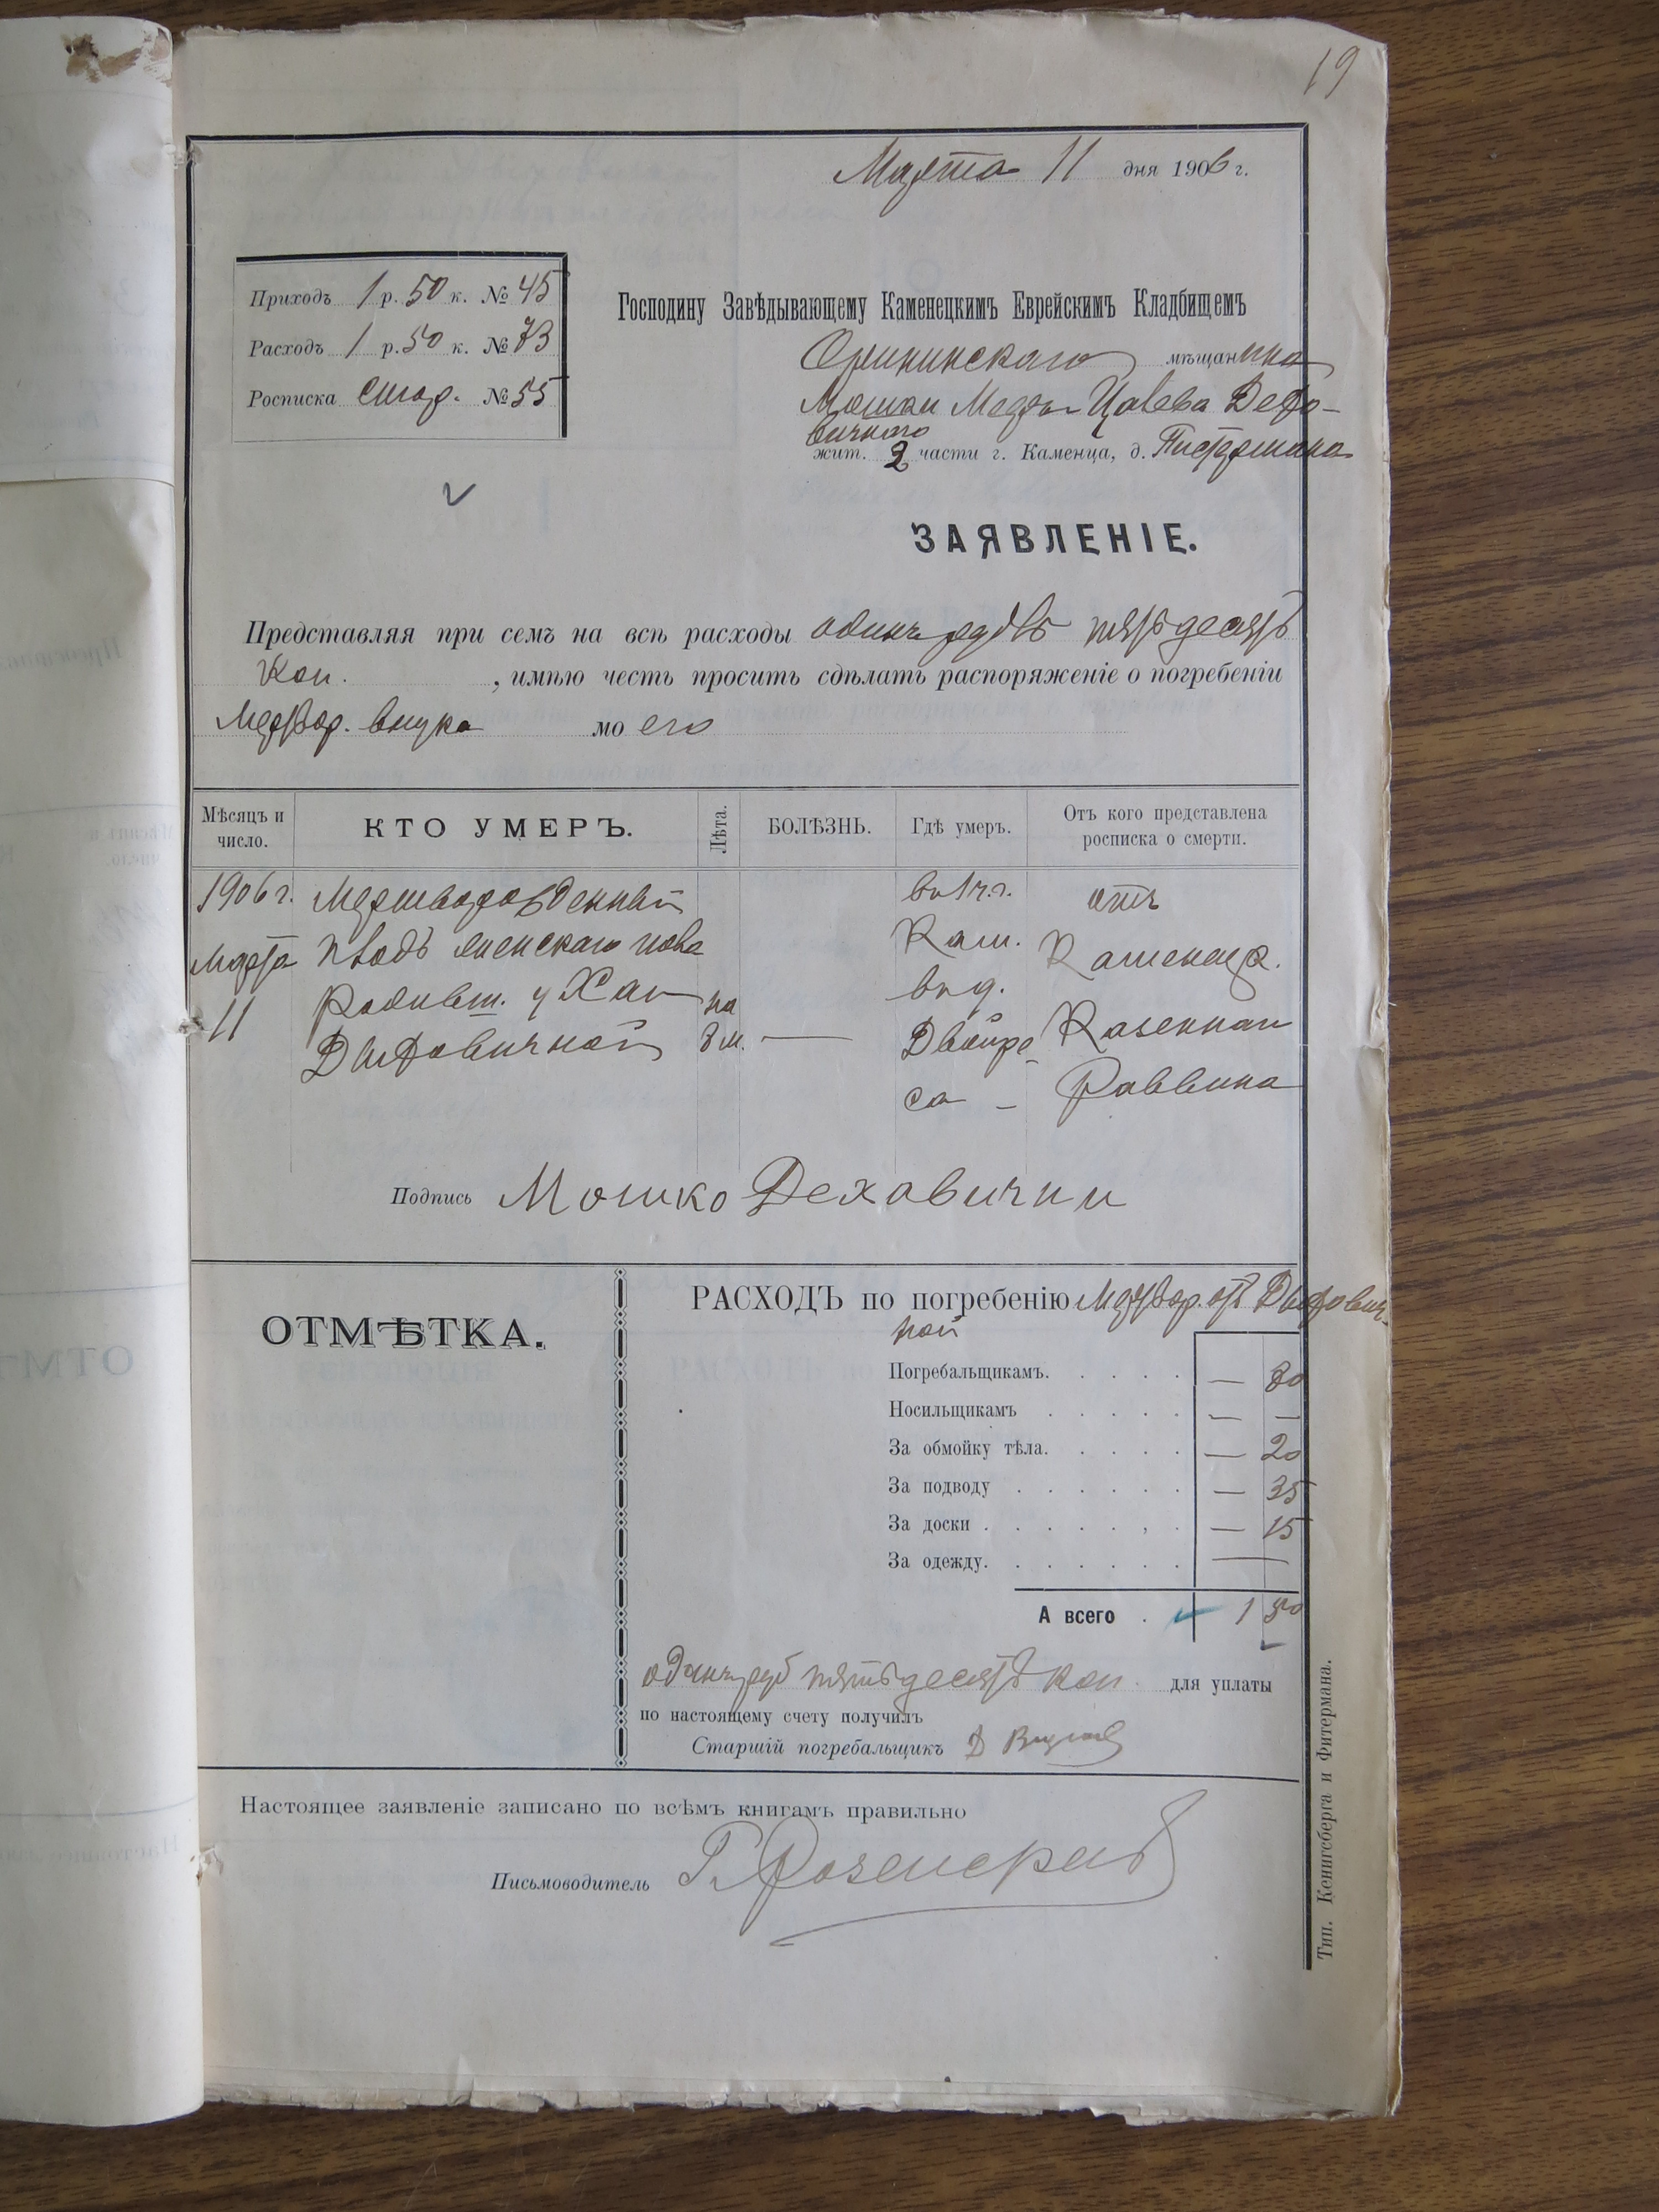 19
Марта 11 дня 1906 г.
Приходъ 1 р. 50 к. № 45
Расходъ 1 р. 50 к. № 73
Росписка стар. № 55
Господину Завѣдывающему Каменецкимъ Еврейскимъ Кладбищемъ
Орининскаго мѣщанина
Мошки
вичнаго
жит. 2 части г. Каменца, д.
ЗАЯВЛЕНІЕ.
Представляя при семъ на всѣ расходы одинъ рубль пятьдесятъ
коп. , имѣю честь просить сдѣлать распоряженіе о погребеніи
Мертвор. внука мо его
Мѣсяцъ и число.
КТО УМЕРЪ.
Лѣта.
БОЛѢЗНЬ.
Гдѣ умеръ.
Отъ кого представлена росписка о смерти.
1906 г. Мертворожденный во 1 ч. г. отъ
Марта плодъ женскаго пола Кам. Каменецк.
11 родивш. у Хаи на в д. Казеннаго
8 м. — Двойре-
са – Раввина
Подпись Мошко Дехавични
ОТМѢТКА.
РАСХОДЪ по погребенію Мертвор. отъ
ной
Погребальщикамъ. — 80
Носильщикамъ — —
За обмойку тѣла. — 20
За подводу — 35
За доски — 15
За одежду. —
А всего 1 50
одинъ руб пятьдесятъ коп. для уплаты
по настоящему счету получилъ
Старшій погребальщикъ Д
Настоящее заявленіе записано по всѣмъ книгамъ правильно
Письмоводитель Г.
Тип. Кенигсберга и Фитермана.